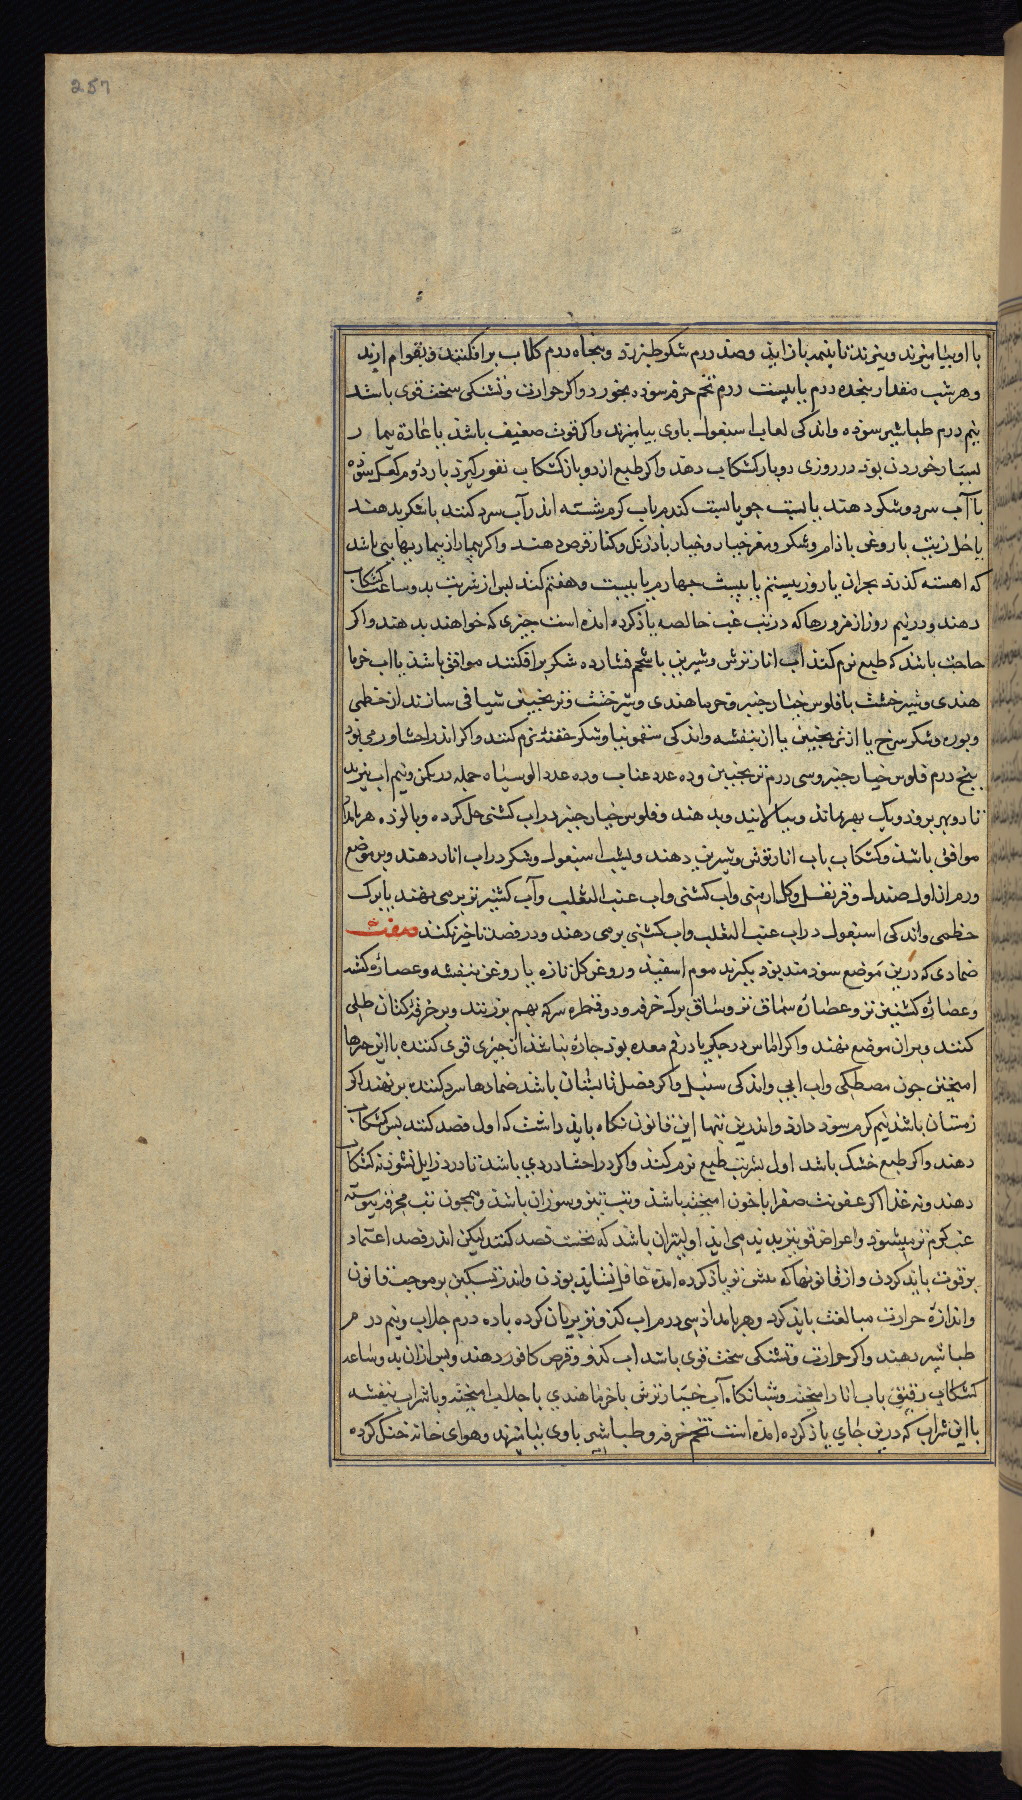 257
با او بیامیزند و بپزند تا بنیمه باز اید و صد درم شکر طبرزد و پنجاه درم کلاب برافکنند و بقوام ارند
و هر شب مقدار پنجده درم با بیست درم تخم خرفه سوده بخورد و اکر حرارت و تشنکی سخت قوی باشد
نیم درم طباشیر سوده و اندکی لعاب اسبغول باوی بیامیزند و اکر قوت ضعیف باشد با عادة بیمار
بسیار خوردن بود در روزی دو بار کشکاب دهد و اکر طبع از دو بار کشکاب نفور کیرد بار دوم کعک سوده
با آب سرد و شکر دهند یا بست جو یا بست کندم باب کرم شسته اندر آب سرد کنند با شکر بدهند
یا خل زیت با روغن باذام و شکر و مغز خیار و خیار باذرنک و کنار قرص دهند و اکر بیمار از بیماریهایی باشد
که اهسته کذرد بحران یا روز بیستم یا بیست جهارم یا بیست و هفتم کند پس از شربت بدو ساعت کشکاب
دهند و در نیم روز از مزورها که در تب غب خالصه یاذ کرده امده است جیزی که خواهند بدهند و اکر
حاجت باشد که طبع نرم کنند اب انار ترش و شیرین با شحم فشارده شکر برافکنند موافق باشد یا اب خرما
هندی و شیرخشت با فلوس خیار جنبر و خرما هندی و شیرخشت و ترنجبین شیافی سازند از خطمی
و بوره و شکر سرخ یا از ترنجبین یا از بنفشه و اندکی سقمونیا و شکر حقنه نرم کنند و اکر اندر احشا ورمی بود
پنج درم فلوس خیار جنبر و سی درم ترنجبین و ده عدد عناب و ده عدد الو سیاه جمله در یکمن و نیم اب بپزند
تا دو بهر برود و یک بهر بماند و بپالایند و بدهند و فلوس خیار جنبر در اب کشنی حل کرده و پالوده هر بامداد
موافق باشد و کشکاب باب انار ترش و شیرین دهند و بشب اسبغول و شکر در اب انار دهند و بر موضع
ورم از اول صندل و قرنفل و کل ارمنی و اب کشنی و اب عنب الثعلب و آب کشنیز تر برمی نهند یا برک
خطمی و اندکی اسبغول در اب عنب الثعلب و اب کشنی برمی دهند و در فصد تاخیر نکنند صفت
ضمادی که درین موضع سودمند بود بکیرند موم اسفید و روغن کل تازه یا روغن بنفشه و عصارۀ کشنه
و عصارۀ کشنیز تر و عصارۀ سماق تر و ساق برک خرفه و دو قطره سرکه بهم بزنند و بر خرقۀ کتان طلی
کنند و بران موضع نهند و اکر اماس در جکر یا در فم معده بود جاره نباشد از جیزی قوی کننده با این جیزها
امیختن جون مصطکی و اب ابی و اندکی سنبل و اکر فصل تابستان باشد ضمادها سرد کننده برنهند اکر
زمستان باشد نیم کرم سود دارد و اندرین تبها این قانون نکاه باید داشت که اول فصد کنند پس کشکاب
دهند و اکر طبع خشک باشد اول بشربت طبع نرم کنند و اکر در احشا دردی باشد تا درد زایل نشود نه کشکاب
دهند و نه غذا اکر عفونت صفرا با خون امیخته باشد و تب تیز و سوزان باشد و همجون تب محرقه پیوسته
غب کرم تر میشود و اعراض قوی تر پدید می اید اولیتر ان باشد که نخست فصد کنند لیکن اندر فصد اعتماد
بر قوت باید کردن و از قانونها که پیش تر یاذ کرده امده غافل نشاید بودن و اندر تسکین بر موجب قانون
و اندازۀ حرارت مبالغت باید کرد و هر بامداد سی درم اب کدو تر بریان کرده با ده درم جلاب و نیم درم
طباشیر دهند و اکر حرارت و تشنکی سخت قوی باشد اب کدو و قرص کافور دهند و پس از ان بدو ساعه
کشکاب رقیق باب انار امیخته و شبانکاه آب خیار ترش یا خرما هندی با جلاب امیخته و یا شراب بنفشه
با این شراب که درین جای یاذ کرده امده است تخم خرفه و طباشیر باوی بیامیزند و هوای خانه خنک کرده